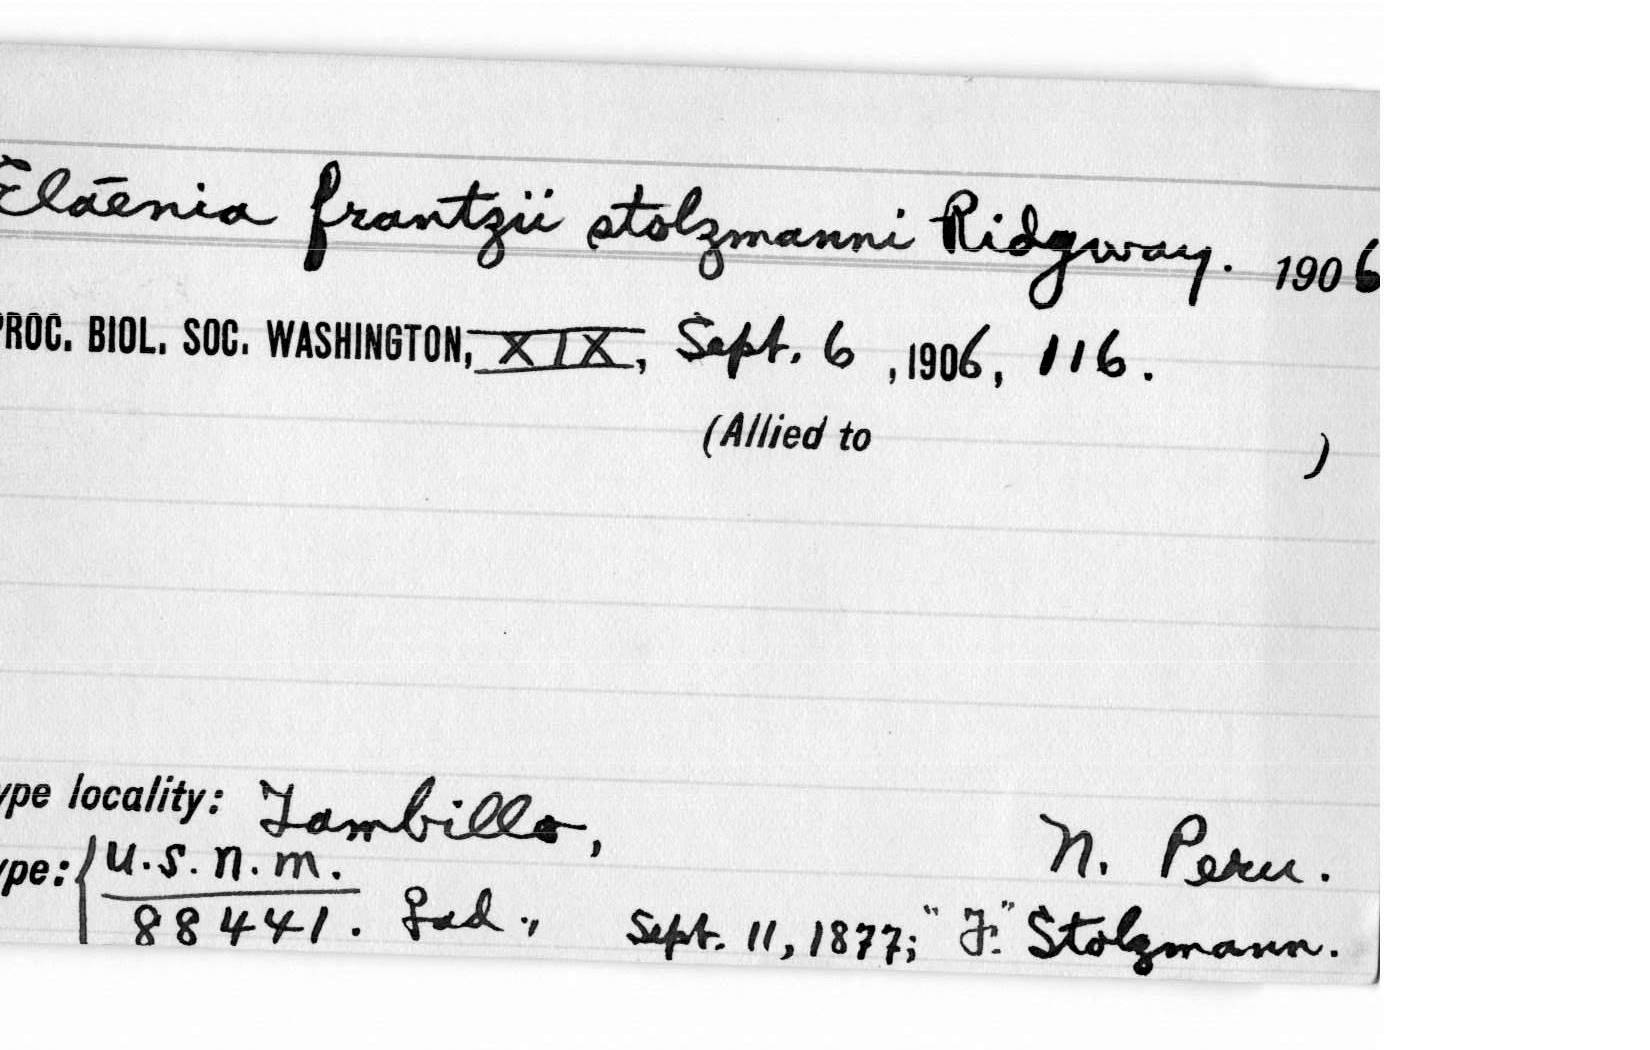 Elaenia frantzii stolzmanni Ridgway. 1906
PROC. BIOL. SOC. WASHINGTON, XIX, Sept. 6, 1906, 116.
(Allied to )
ype locality: Tambillo, N. Peru.
ype: U.S.N.M.
88441. ad., Sept. 11, 1877; "J." Stolzmann.